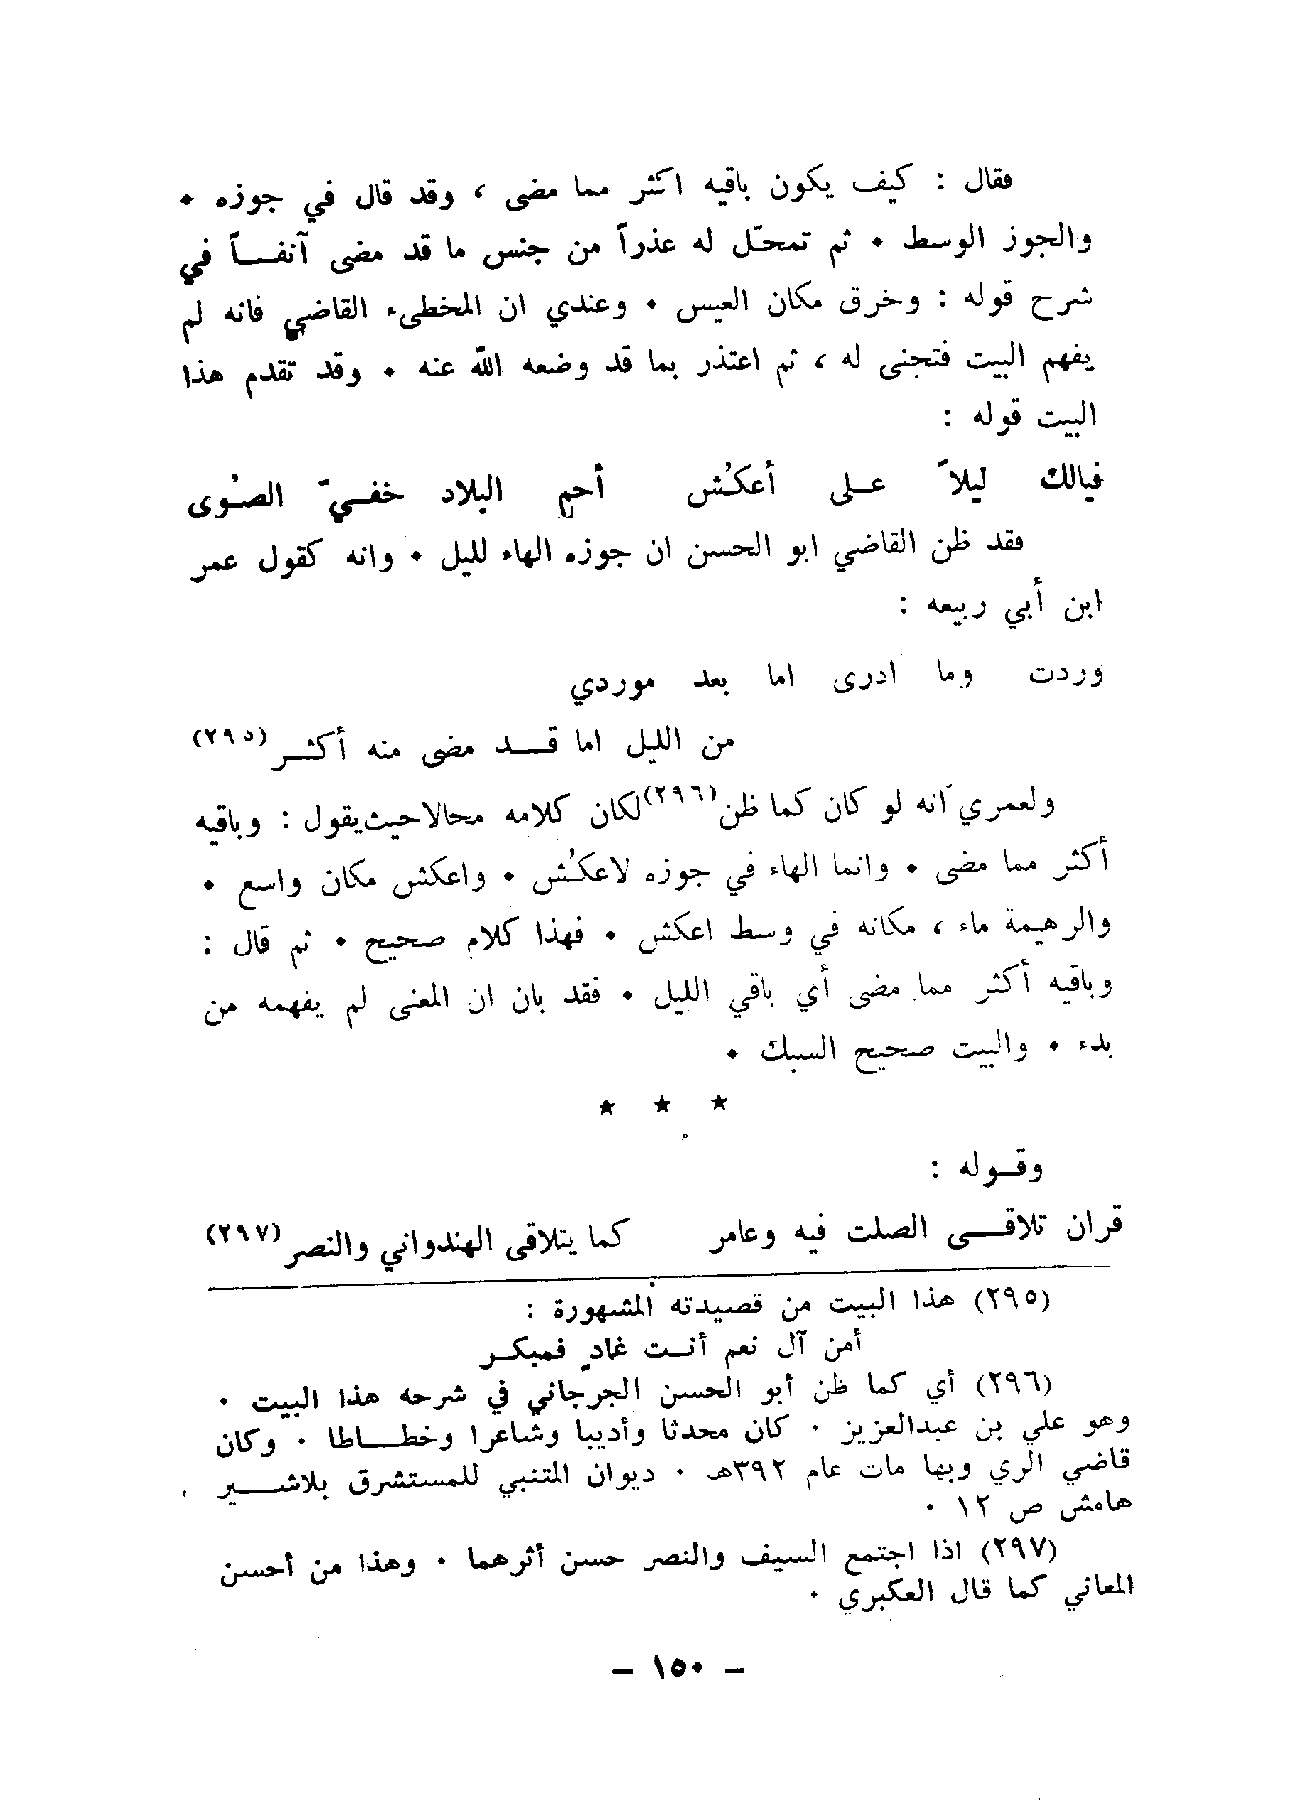 فقال : كيف يكون باقيه اكثر مما مضى ، وقد قال في جوزه ٠
والجوز الوسط ٠ ثم تمحّل له عذراً من جنس ما قد مضى آنفاً في
شرح قوله : وخرق مكان العيس ٠ وعندي ان المخطىء القاضي فانه لم
يفهم البيت فتجنى له ، ثم اعتذر بما قد وضعه الله عنه ٠ وقد تقدم هذا
البيت قوله :
فيالك ليلاً على أعكُش أحم البلاد خفيّ الصُوى
فقد ظن القاضي ابو الحسن ان جوزه الهاء لليل ٠ وانه كقول عمر
ابن أبي ربيعه :
وردت وما ادرى اما بعد موردي
من الليل اما قد مضى منه أكثر (٢٩٥)
ولعمري انه لو كان كما ظن (٢٩٦) لكان كلامه محالا حيث يقول : وباقيه
أكثر مما مضى ٠ وانما الهاء في جوزه لاعكُش ٠ واعكش مكان واسع ٠
والرهيمة ماء ، مكانه في وسط اعكش ٠ فهذا كلام صحيح ٠ ثم قال :
وباقيه أكثر مما مضى أي باقي الليل ٠ فقد بان ان المعنى لم يفهمه من
بدء ٠ والبيت صحيح السبك ٠
★ ★ ★
وقوله :
قران تلاقى الصلت فيه وعامر كما يتلاقى الهندواني والنصر (٢٩٧)
(٢٩٥) هذا البيت من قصيدته المشهورة :
أمن آل نعم أنت غادٍ فمبكر
(٢٩٦) أي كما ظن أبو الحسن الجرجاني في شرحه هذا البيت ٠
وهو علي بن عبدالعزيز ٠ كان محدثا وأديبا وشاعرا وخطاطا ٠ وكان
قاضي الري وبها مات عام ٣٩٢هـ ٠ ديوان المتنبي للمستشرق بلاشير
هامش ص ١٢ ٠
(٢٩٧) اذا اجتمع السيف والنصر حسن أثرهما ٠ وهذا من أحسن
المعاني كما قال العكبري ٠
– ١٥٠ –